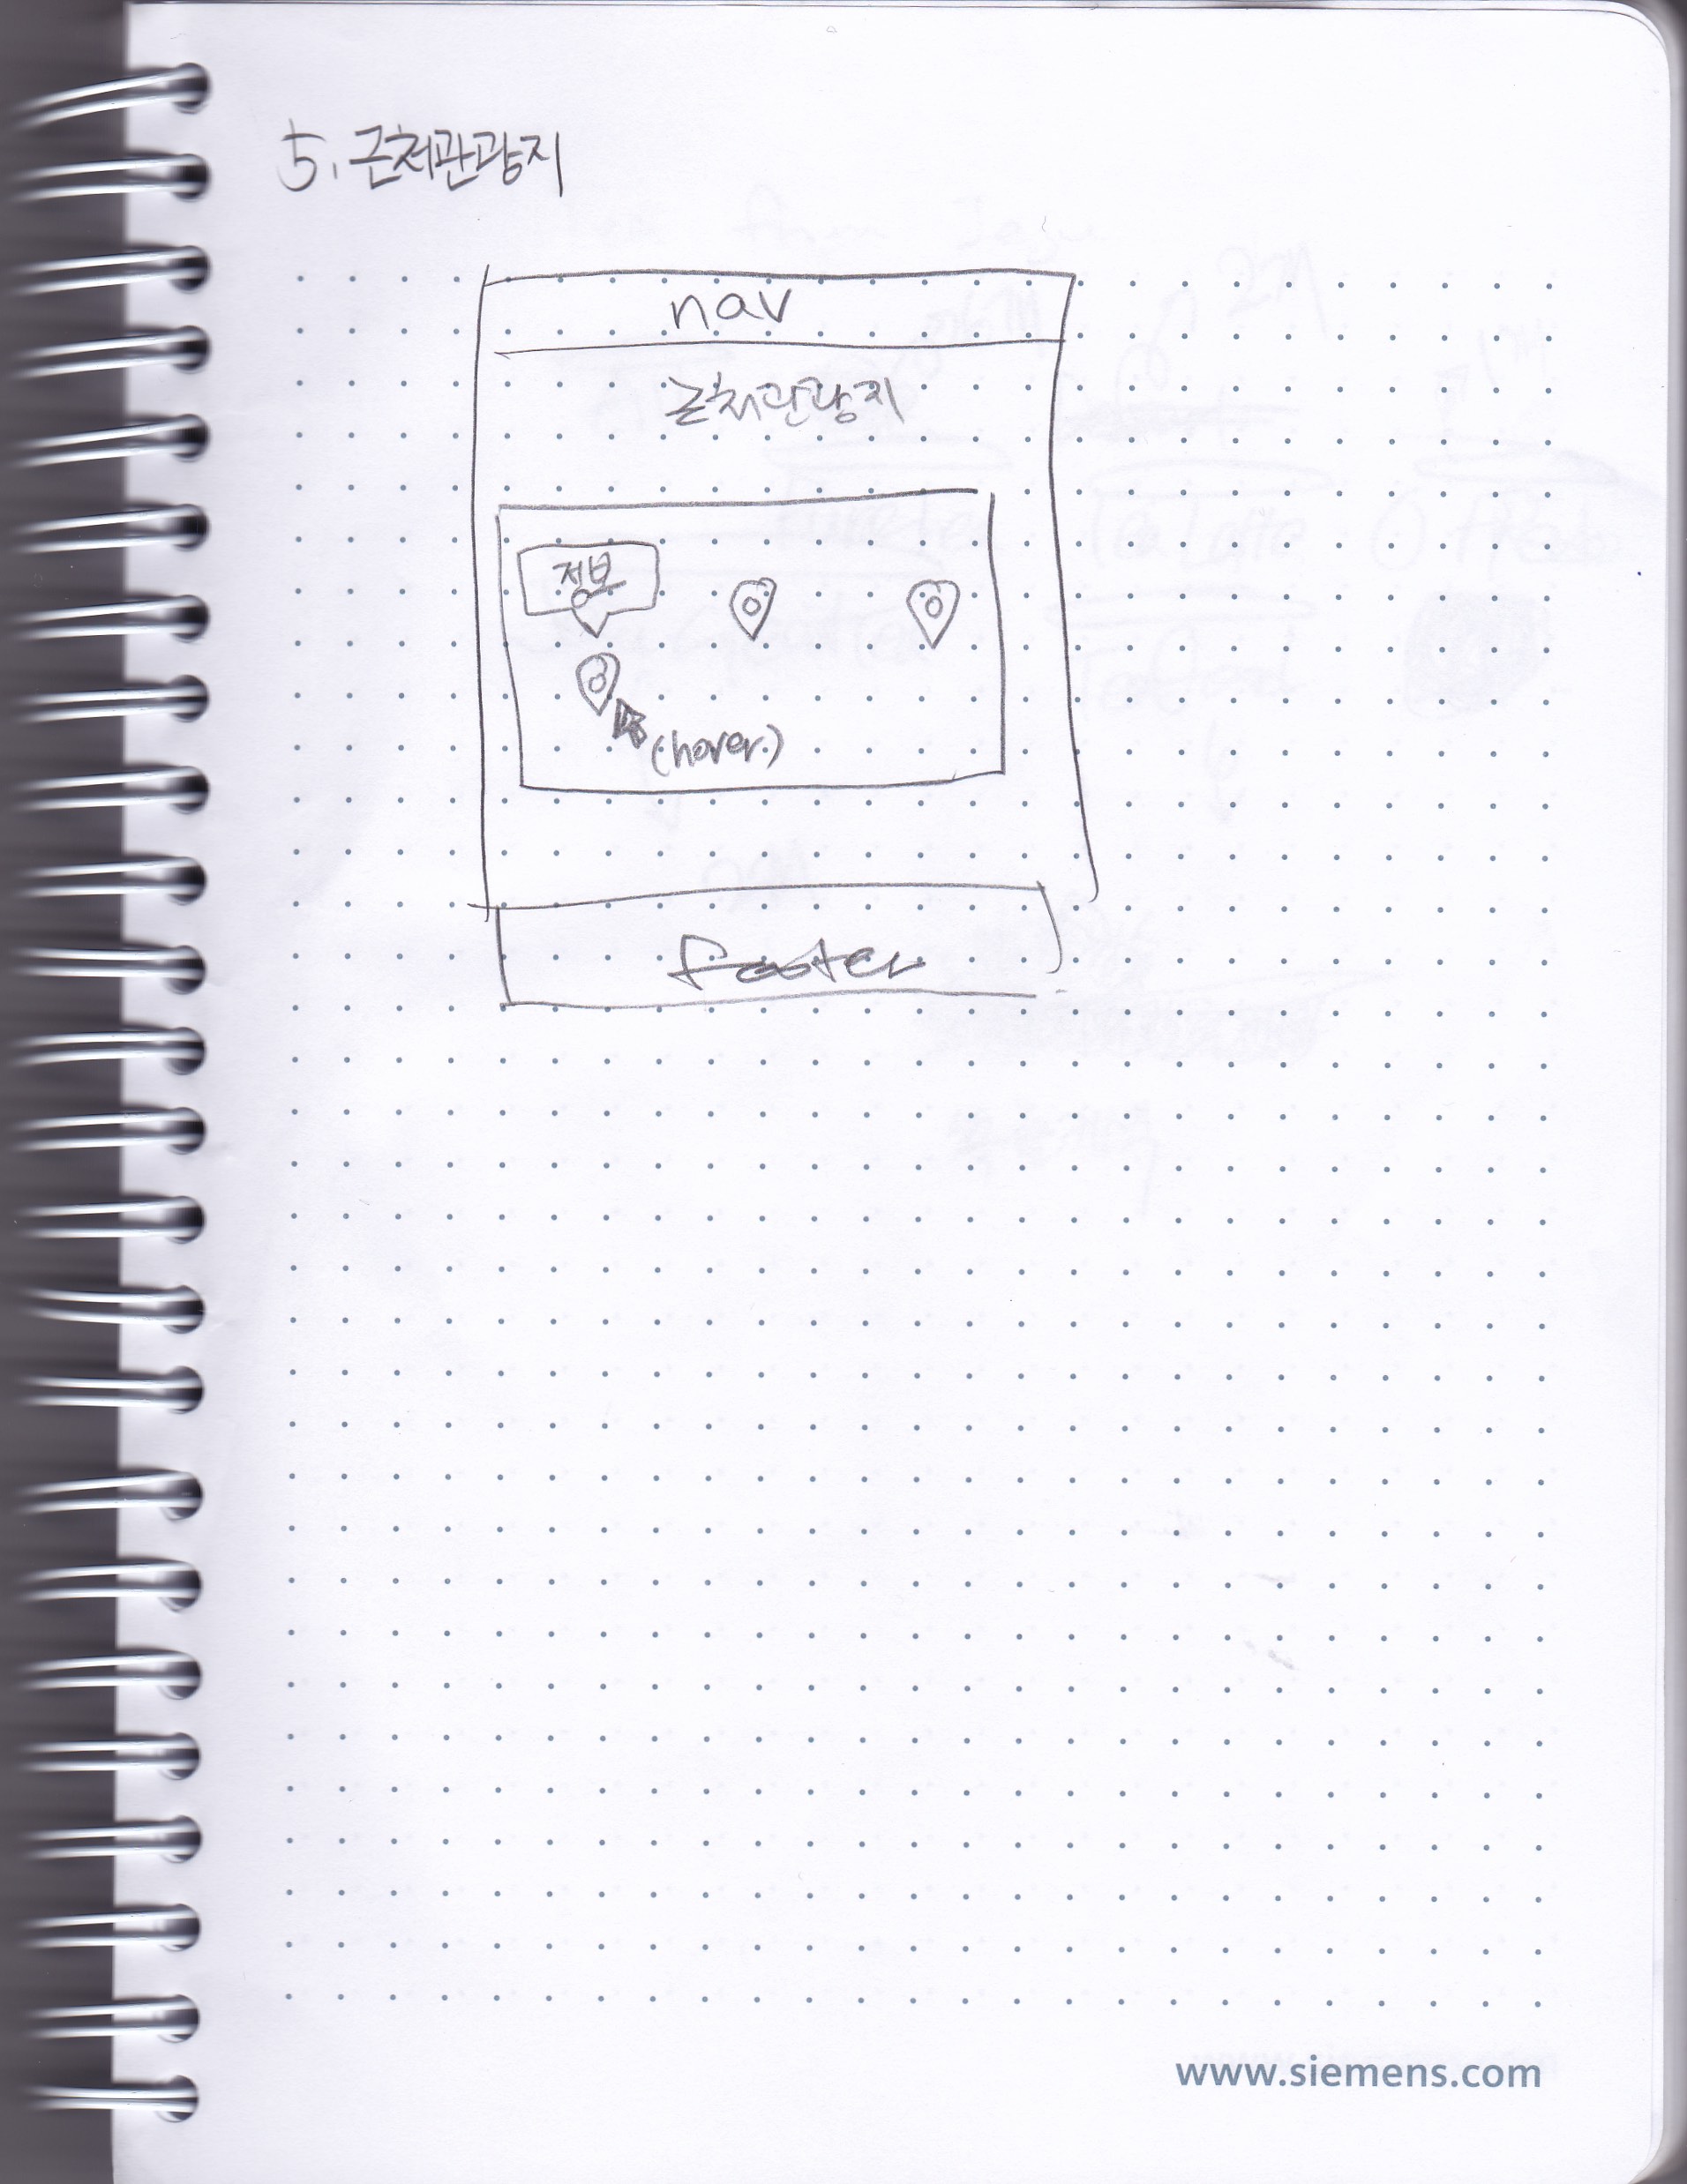 5. 근처관광지
nav
근처관광지
정보
(hover)
footer
www.siemens.com